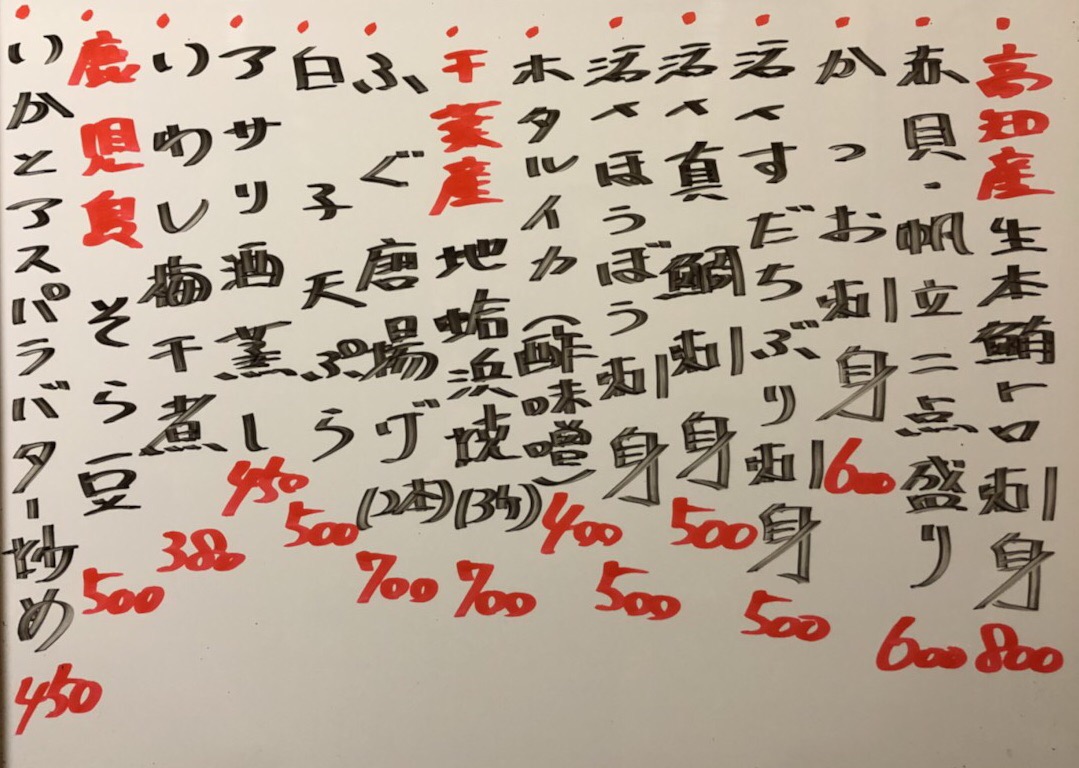 高知産生本鮪トロ刺身 800
赤貝・帆立二点盛り 600
かつお刺身 600
活〆すだちぶり刺身 500
活〆真鯛刺身 500
活〆ほうぼう刺身 500
ホタルイカ(酢味噌) 400
千葉産地蛤浜焼(3ケ) 700
ふぐ唐揚げ(2本) 700
白子天ぷら 500
アサリ酒蒸し 450
いわし梅干煮 380
鹿児島そら豆 500
いかとアスパラバター炒め 450